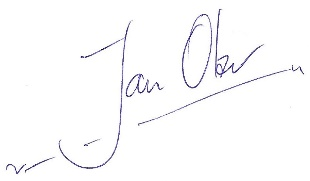 Jan Ober